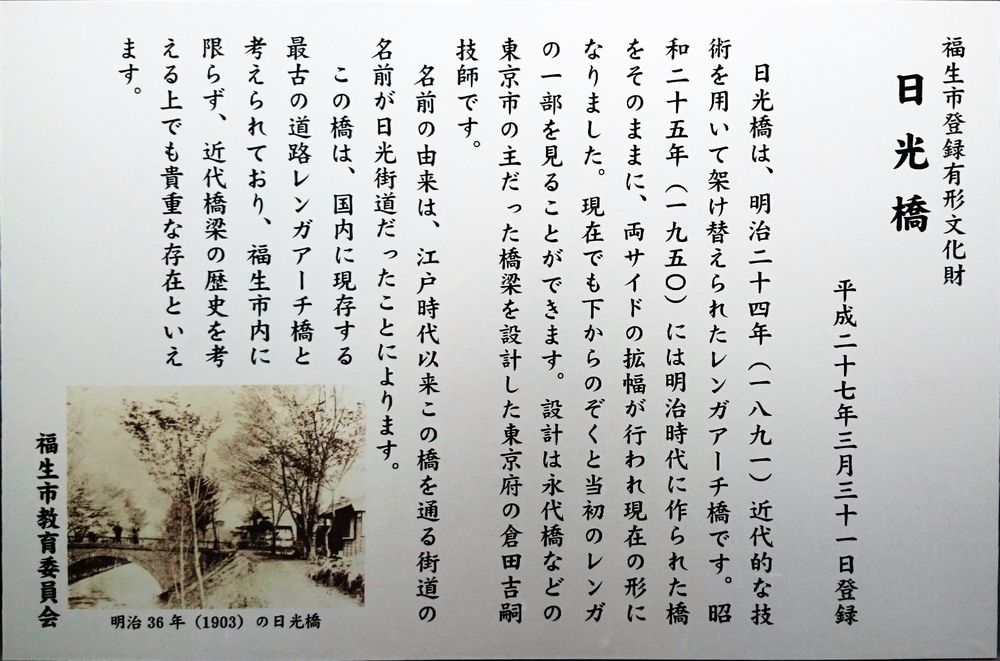 福生市登録有形文化財
日光橋
平成二十七年三月三十一日登録
日光橋は、明治二十四年（一八九一）近代的な技
術を用いて架け替えられたレンガアーチ橋です。昭
和二十五年（一九五〇）には明治時代に作られた橋
をそのままに、両サイドの拡幅が行われ現在の形に
なりました。現在でも下からのぞくと当初のレンガ
の一部を見ることができます。設計は永代橋などの
東京市の主だった橋梁を設計した東京府の倉田吉嗣
技師です。
名前の由来は、江戸時代以来この橋を通る街道の
名前が日光街道だったことによります。
この橋は、国内に現存する
最古の道路レンガアーチ橋と
考えられており、福生市内に
限らず、近代橋梁の歴史を考
える上でも貴重な存在といえ
ます。
明治36年（1903）の日光橋
福生市教育委員会